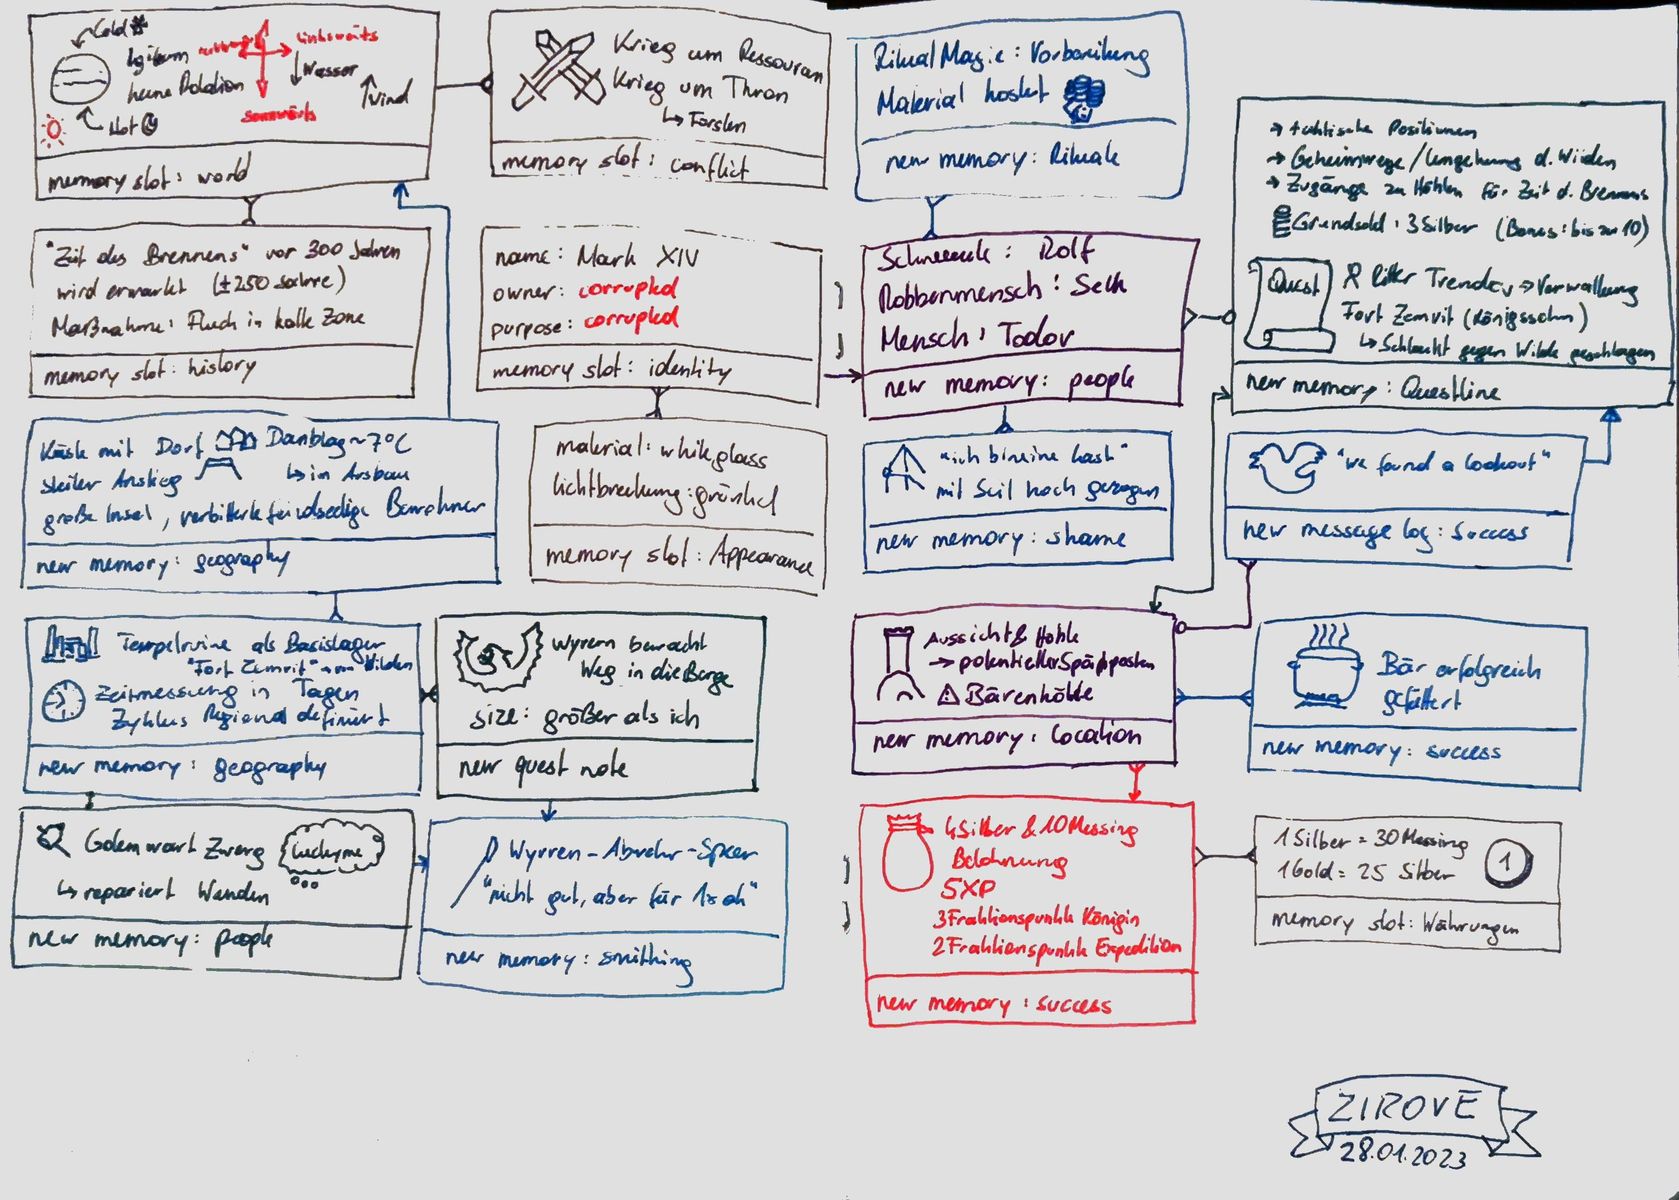 Cold
keine Rotation
Hot
linkswärts
Wasser
Wind
sonnwärts
memory slot: world
Krieg um Ressourcen
Krieg um Thron
↳ Forsten
memory slot: conflict
Ritual Magie: Vorbereitung
Material kostet
new memory: Rituale
→ taktische Positionen
→ Geheimwege/Umgehung d. Wilden
→ Zugänge zu Höhlen für Zeit d. Brennens
Grundsold: 3 Silber (Bonus: bis zu 10)
Quest
Ritter Trendov → Verwaltung
Fort Zemrit (Königssohn)
↳ Schlacht gegen Wilde geschlagen
new memory: Questline
"Zeit des Brennens" vor 300 Jahren
wird erwartet (±250 Jahre)
Maßnahme: Fluch in kalte Zone
memory slot: history
name: Mark XIV
owner: corrupted
purpose: corrupted
memory slot: identity
Schneeeule: Rolf
Robbenmensch: Selk
Mensch: Todor
new memory: people
Küste mit Dorf Danblag ~7°C
steiler Anstieg ↳ im Ausbau
große Insel, verbitterte feindselige Bewohner
new memory: geography
material: white glass
lichtbrechung: grünlich
memory slot: Appearance
"ich bin eine Last"
mit Seil hoch gezogen
new memory: shame
"we found a lookout"
new message log: success
Tempelruine als Basislager
"Fort Zemrit" Wilden
Zeitmessung in Tagen
Zyklus Regional definiert
new memory: geography
Wyvern bewacht
Weg in die Berge
size: größer als ich
new quest note
Aussicht & Höhle
→ potentieller Spähposten
⚠ Bärenhöhle
new memory: Location
Bär erfolgreich
gefüttert
new memory: success
Golemwart Zwerg
Luchyme
↳ repariert Wenden
new memory: people
Wyvern-Abwehr-Speer
"nicht gut, aber für 1x ok"
new memory: smithing
4 Silber & 10 Messing
Belohnung
5XP
3 Fraktionspunkte Königin
2 Fraktionspunkte Expedition
new memory: success
1 Silber = 30 Messing
1 Gold = 25 Silber
1
memory slot: Währungen
ZIROVE
28.01.2023